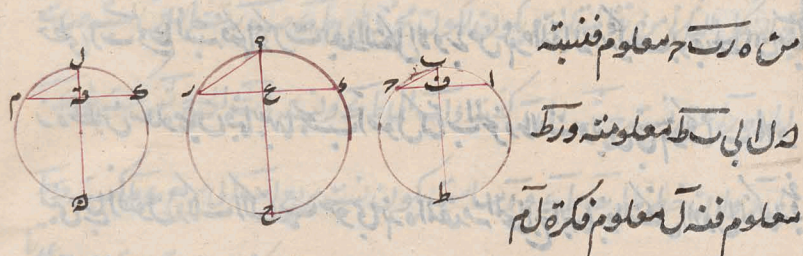 من ه ر ب ح معلوم فنسبته
ه ل الى ب ط معلومته و ر ط
معلوم فنه ل معلوم فكرة ل م
ل
م
ف
ك
ه
ر
ع
ء
ح
ب
ف
ا
ط